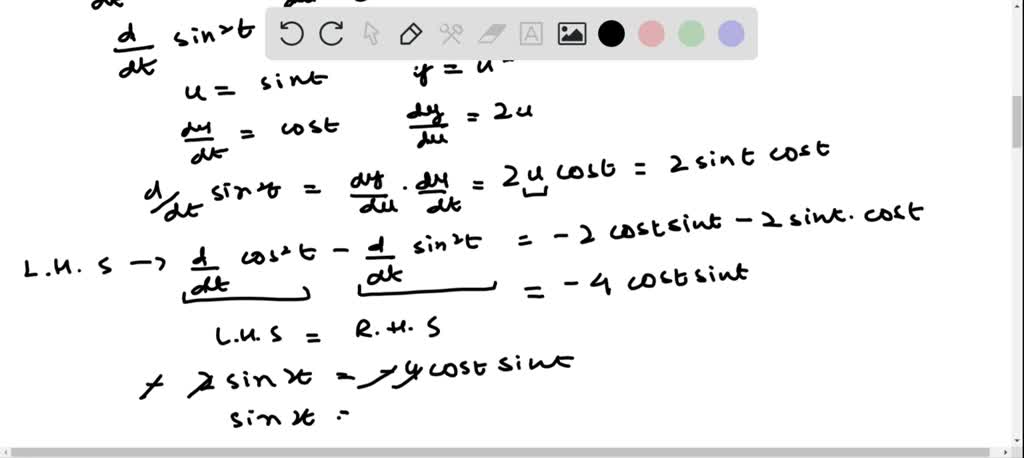 d/dt sin²t
u = sint y = u²
du/dt = cost dy/du = 2u
d/dt sin²t = dy/du · du/dt = 2u cost = 2 sint cost
L.H.S → d/dt cos²t - d/dt sin²t = -2 cost sint - 2 sint. cost
= -4 cost sint
L.H.S = R.H.S
-2 sin2t = -4 cost sint
sin2t =